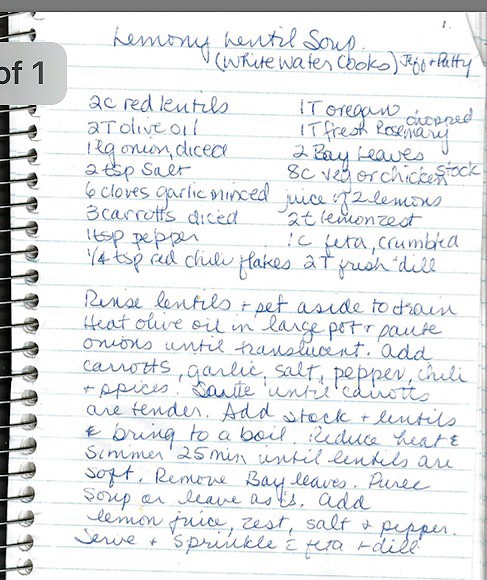 1.
of 1
Lemony Lentil Soup.
(Whitewater Cooks) Jeff + Patty
2c red lentils
2T olive oil
1 lg onion, diced
2 tsp Salt
6 cloves garlic minced
3 carrotts diced
1 tsp pepper
1/4 tsp red chili flakes
1T oregano
1T fresh Rosemary chopped
2 Bay Leaves
8c veg or chicken stock
juice of 2 lemons
2t lemon zest
1c feta, crumbled
2T fresh dill
Rinse lentils + set aside to drain
Heat olive oil in large pot + saute
onions until translucent. Add
carrotts, garlic, salt, pepper, chili
+ spices. Saute until carrotts
are tender. Add stock + lentils
& bring to a boil. Reduce heat &
Simmer 25 min until lentils are
soft. Remove Bay leaves. Puree
soup or leave as is. Add
lemon juice, zest, salt + pepper.
Serve + Sprinkle c̄ feta + dill